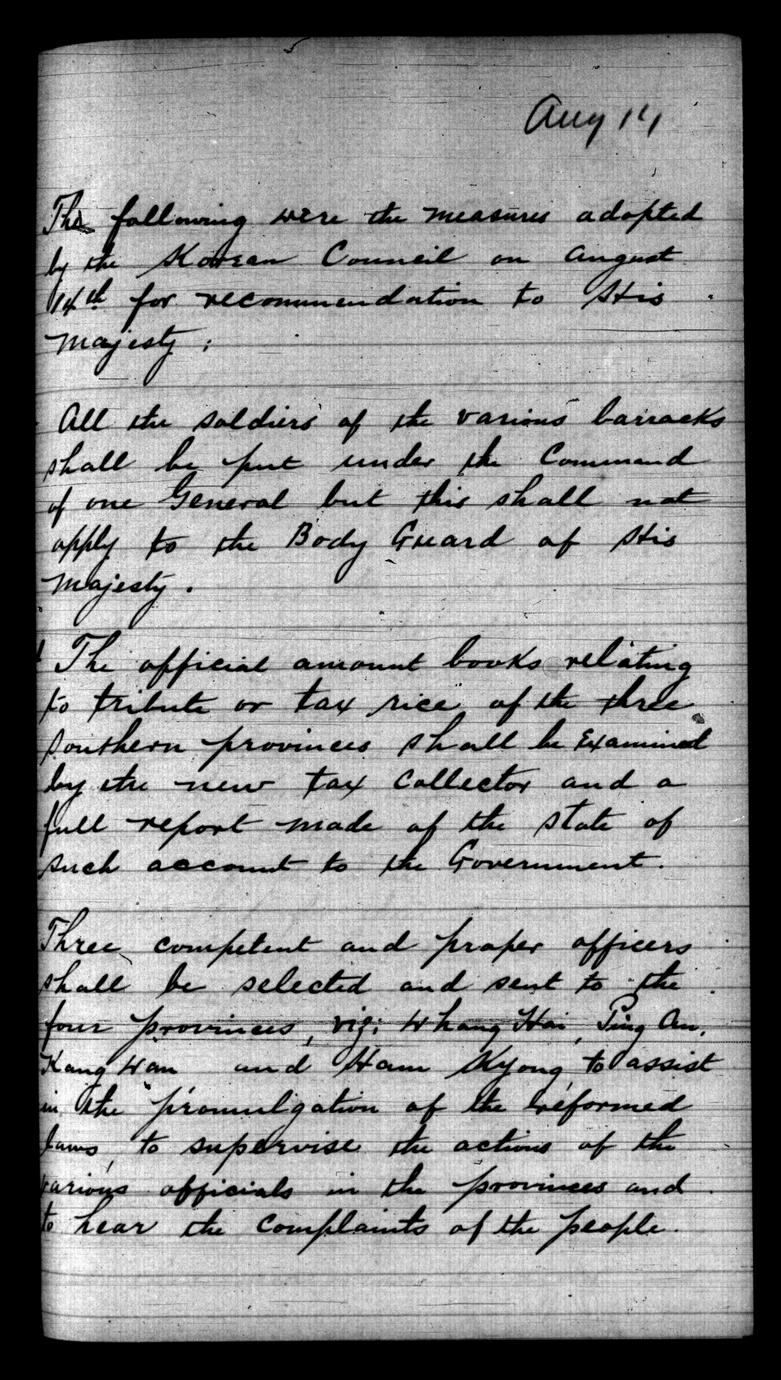 Aug 14
The following were the measures adopted
by the Korean Council on August
14th for recommendation to His
Majesty:
All the soldiers of the various barracks
shall be put under the Command
of one General but this shall not
apply to the Body Guard of His
Majesty.
The official amount books relating
to tribute or tax rice of the three
southern provinces shall be Examined
by the new tax Collector and a
full report made of the state of
such account to the Government.
Three competent and proper officers
shall be selected and sent to the
four provinces, viz: Whang Hai, Ping An,
Kang Wan and Ham Kyong to assist
in the promulgation of the reformed
laws, to supervise the actions of the
various officials in the provinces and
to hear the Complaints of the people.